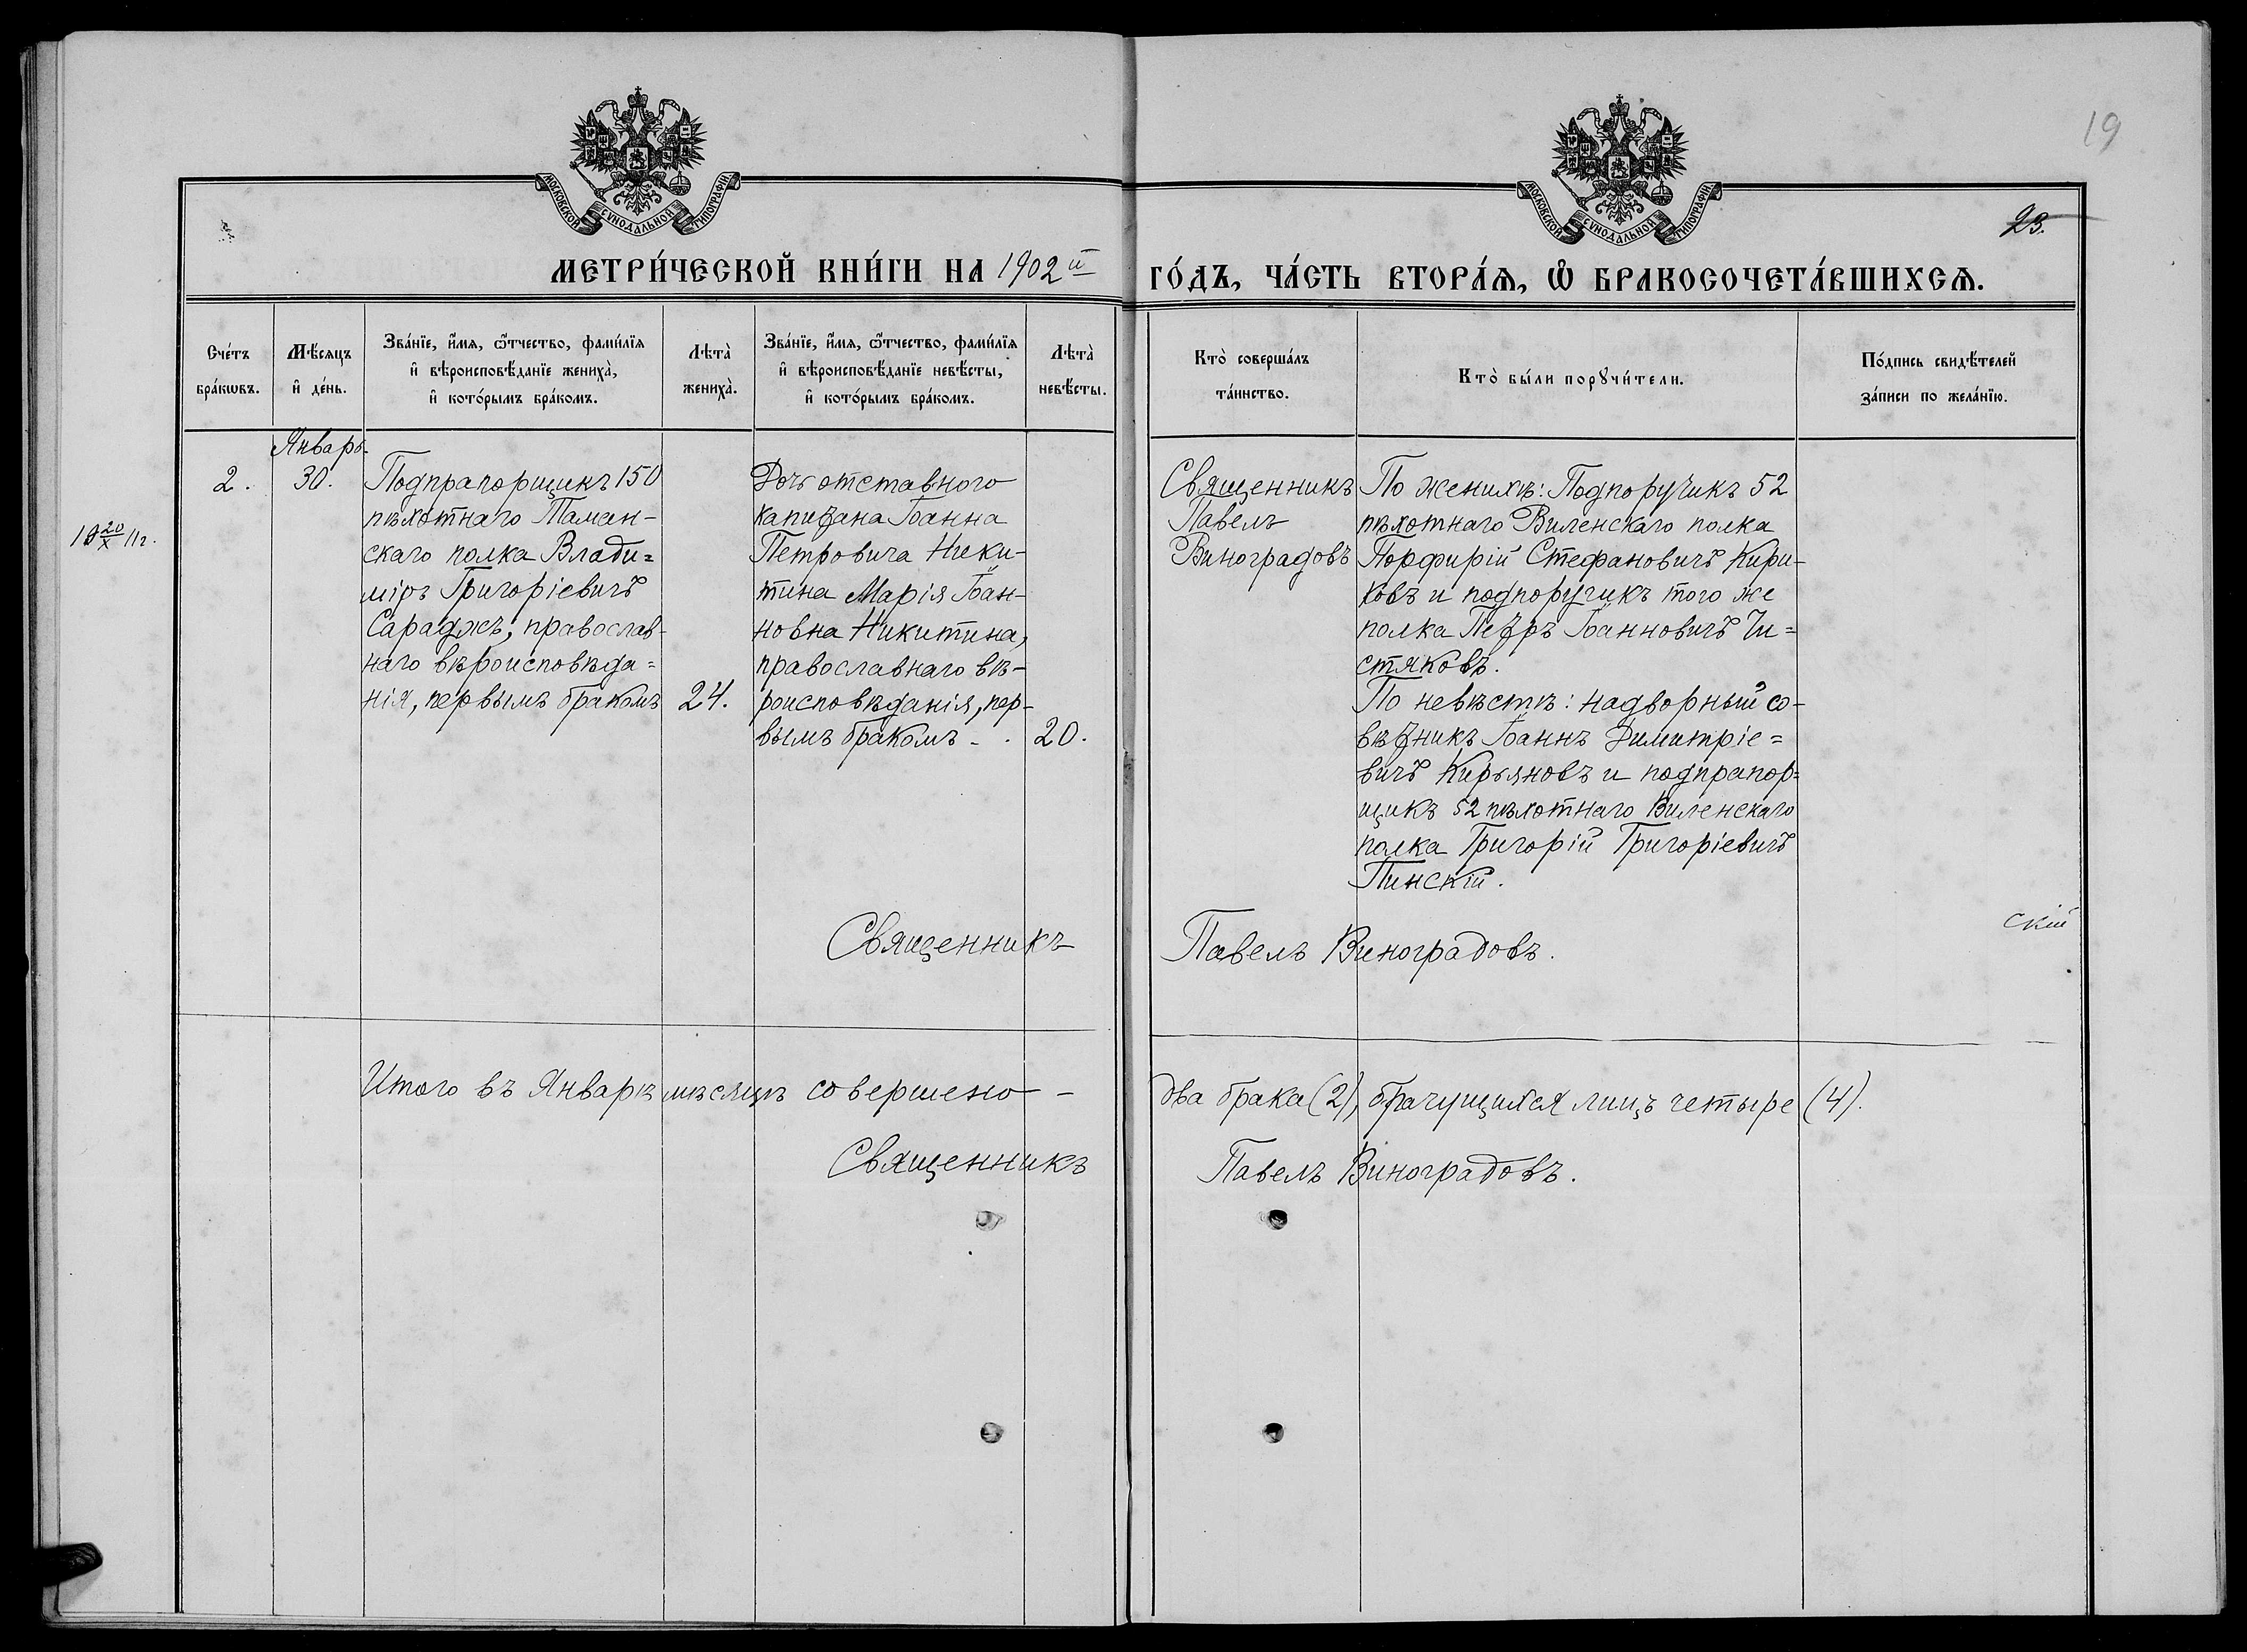 19
МОСКОВСКОЙ СѴНОДАЛЬНОЙ ТИПОГРАФІИ
МОСКОВСКОЙ СѴНОДАЛЬНОЙ ТИПОГРАФІИ
23.
МЕТРИ́ЧЕСКОЙ КНИ́ГИ НА 1902й ГО́ДЪ, ЧА́СТЬ ВТОРА́Ѧ, Ѡ҆ БРАКОСОЧЕТА́ВШИХСѦ.
Сче́тъ
бра́кѡвъ.
Мѣ́сяцъ
и҆ де́нь.
Зва́нїе, и҆́мя, ѻ҆́тчество, фами́лїя
и҆ вѣроисповѣ́данїе жениха̀,
и҆ кото́рымъ бра́комъ.
Лѣта̀
жениха̀.
Зва́нїе, и҆́мя, ѻ҆́тчество, фами́лїя
и҆ вѣроисповѣ́данїе невѣ́сты,
и҆ кото́рымъ бра́комъ.
Лѣта̀
невѣ́сты.
Кто̀ соверша́лъ
та́инство.
Кто̀ бы́ли порꙋчи́тели.
По́дпись свидѣ́телей
за́писи по жела́нїю.
Январь.
2.
30.
Подпрапорщикъ 150
пѣхотнаго Таман-
скаго полка Влади=
міръ Григоріевичъ
Сараджъ, православ-
наго вѣроисповѣда=
нія, первымъ бракомъ
24.
Дочь отставного
капитана Іоанна
Петровича Ники-
тина Марія Іоан-
новна Никитина,
православнаго вѣ-
роисповѣданія, пер-
вымъ бракомъ - .
20.
Священникъ
Павелъ
Виноградовъ
По женихѣ: Подпоручикъ 52
пѣхотнаго Виленскаго полка
Порфирій Стефановичъ Кири-
ковъ и подпоручикъ того же
полка Петръ Іоанновичъ Чи=
стяковъ.
По невѣстѣ: надворный со-
вѣтникъ Іоаннъ Димитріе=
вичъ Кирьяновъ и подпрапор=
щикъ 52 пѣхотнаго Виленскаго
полка Григорій Григоріевичъ
Пинскій.
скій
Священникъ Павелъ Виноградовъ.
Итого въ Январѣ мѣсяцѣ совершено - два брака (2), брачущихся лицъ четыре (4).
Священникъ Павелъ Виноградовъ.